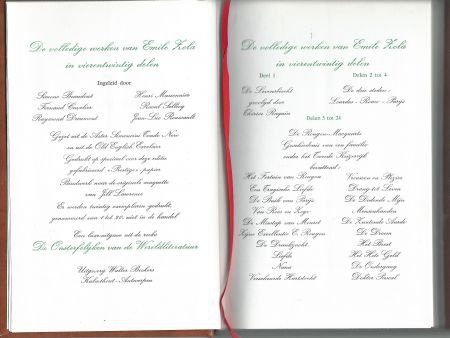 De volledige werken van Emile Zola
in vierentwintig delen
Ingeleid door
Simone Beaudiset
Fernand Cuvelier
Raymond Drumond
Henri Massonnier
Raoul Schlieg
Jean-Luc Renevault
Gezet uit de Aster Simoncini Garde Noir
en uit de Old English Excelsior
Gedrukt op speciaal voor deze editie
gefabriceerd «Prestige» papier
Bandwerk naar de originele maquette
van Jill Laurence
Er werden twintig exemplaren gedrukt,
genummerd van 1 tot 20, niet in de handel
Een luxe-uitgave uit de reeks
De Onsterfelijken van de Wereldliteratuur
Uitgeverij Walter Beckers
Kalmthout-Antwerpen
De volledige werken van Emile Zola
in vierentwintig delen
Deel 1
De Levensbiecht
gevolgd door
Thérèse Raquin
Delen 2 tot 4
De drie steden:
Lourdes - Rome - Parijs
Delen 5 tot 24
De Rougon-Macquarts
Geschiedenis van een familie
onder het Tweede Keizerrijk
bevattend:
Het Fortuin van Rougon
Een Tragische Liefde
De Buik van Parijs
Van Roes en Zege
De Misstap van Mouret
Zijne Excellentie E. Rougon
De Drankzucht
Liefde
Nana
Verscheurde Hartstocht
Vrouwen en Plezier
Drang tot Leven
De Dodende Mijn
Mensenhanden
De Zwoegende Aarde
De Droom
Het Beest
Het Hete Geld
De Ondergang
Dokter Pascal